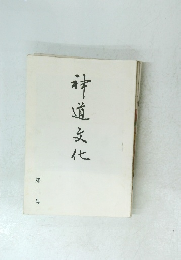 神道文化